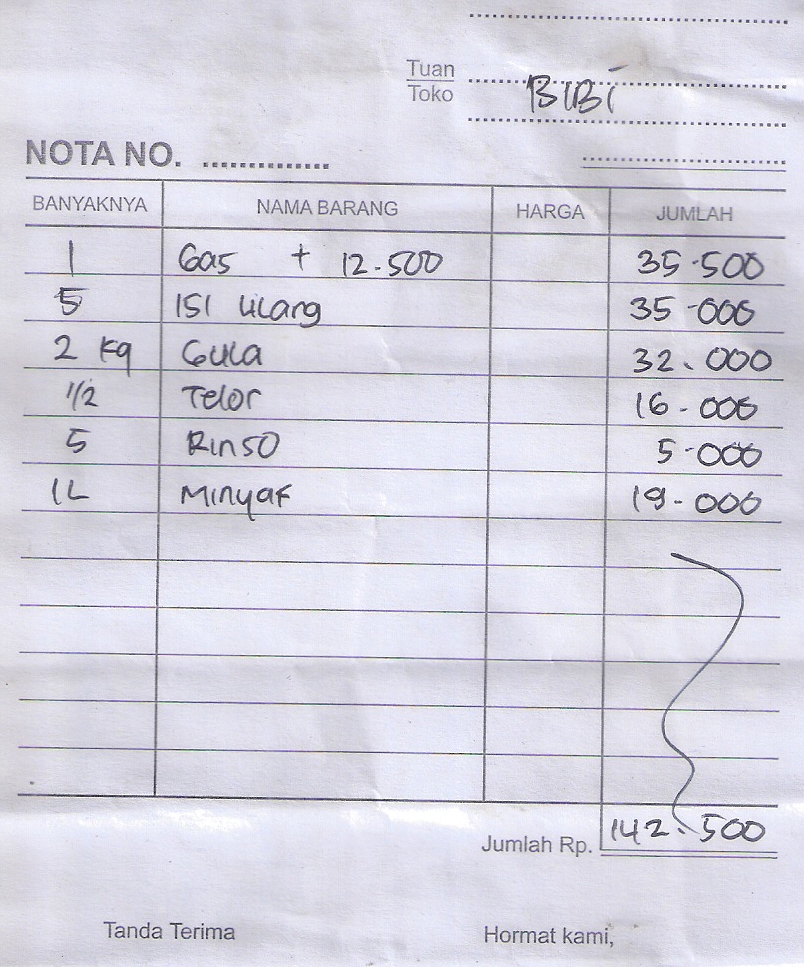 Tuan
Toko
BIBI
NOTA NO.
BANYAKNYA NAMA BARANG HARGA JUMLAH
1 Gas + 12.500 35.500
5 ISI Ulang 35.000
2 Kg Gula 32.000
1/2 Telor 16.000
5 Rinso 5.000
1L Minyak 19.000
Jumlah Rp. 142.500
Tanda Terima Hormat kami,